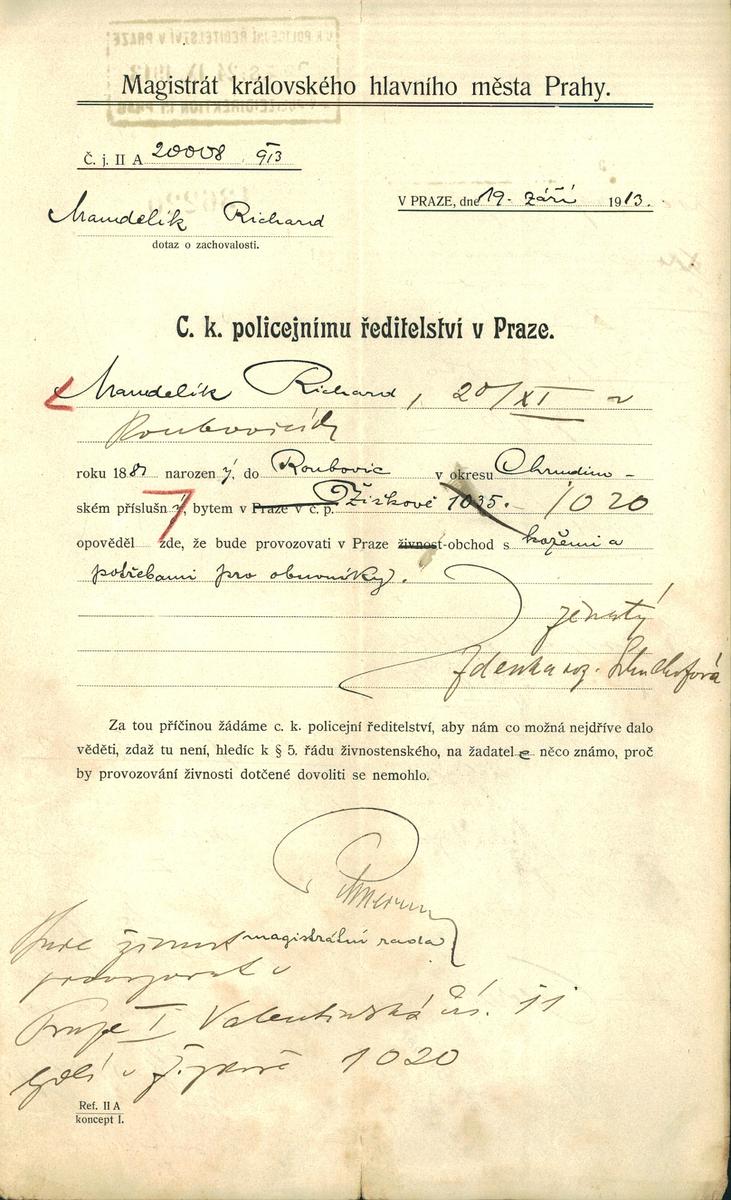 Magistrát královského hlavního města Prahy.
Č. j. II A 20008 913
Mandelík Richard
dotaz o zachovalosti.
V PRAZE, dne 19. září 1913.
C. k. policejnímu ředitelství v Praze.
Mandelík Richard, 20/XI v
Roubovicích
roku 1887 narozený, do Roubovic v okresu Chrudim-
ském příslušný, bytem v Praze v č. p. Žižkově 1035. 1020
opověděl zde, že bude provozovati v Praze živnost-obchod s kožemi a
potřebami pro obuvníky.
ženatý
Zdenka roz.
Za tou příčinou žádáme c. k. policejní ředitelství, aby nám co možná nejdříve dalo
věděti, zdaž tu není, hledíc k § 5. řádu živnostenského, na žadatele něco známo, proč
by provozování živnosti dotčené dovoliti se nemohlo.
magistrátní rada
živnost
provozovat v
Praze I Valentinská čís. 11
bydlí v Žižkově 1020
Ref. II A
koncept I.